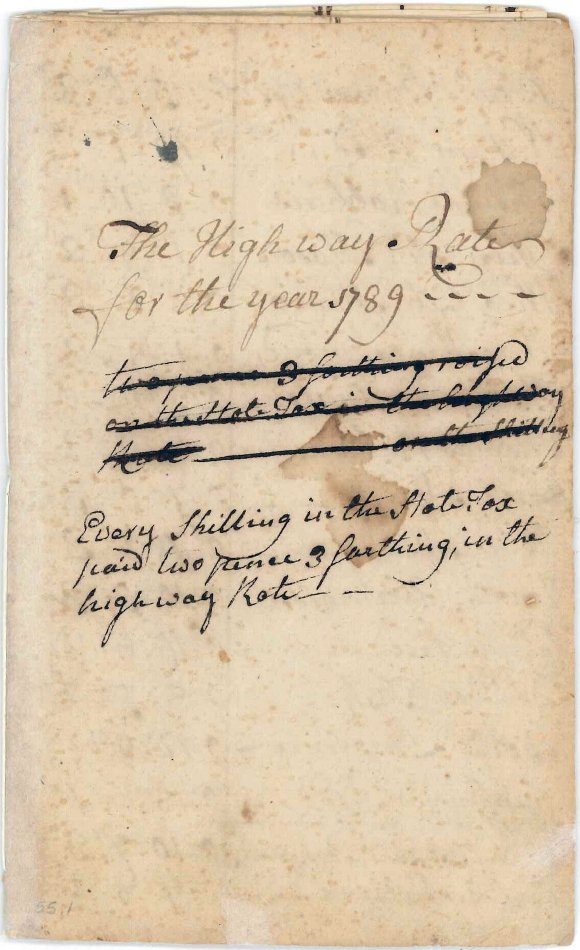 The High way Rate
for the year 1789 - - - -
two pence 3 farthing raised
on the State Tax in the high way
Rate ——— on the Shilling
Every Shilling in the State Tax
paid two pence 3 farthing, in the
high way Rate — —
55.1